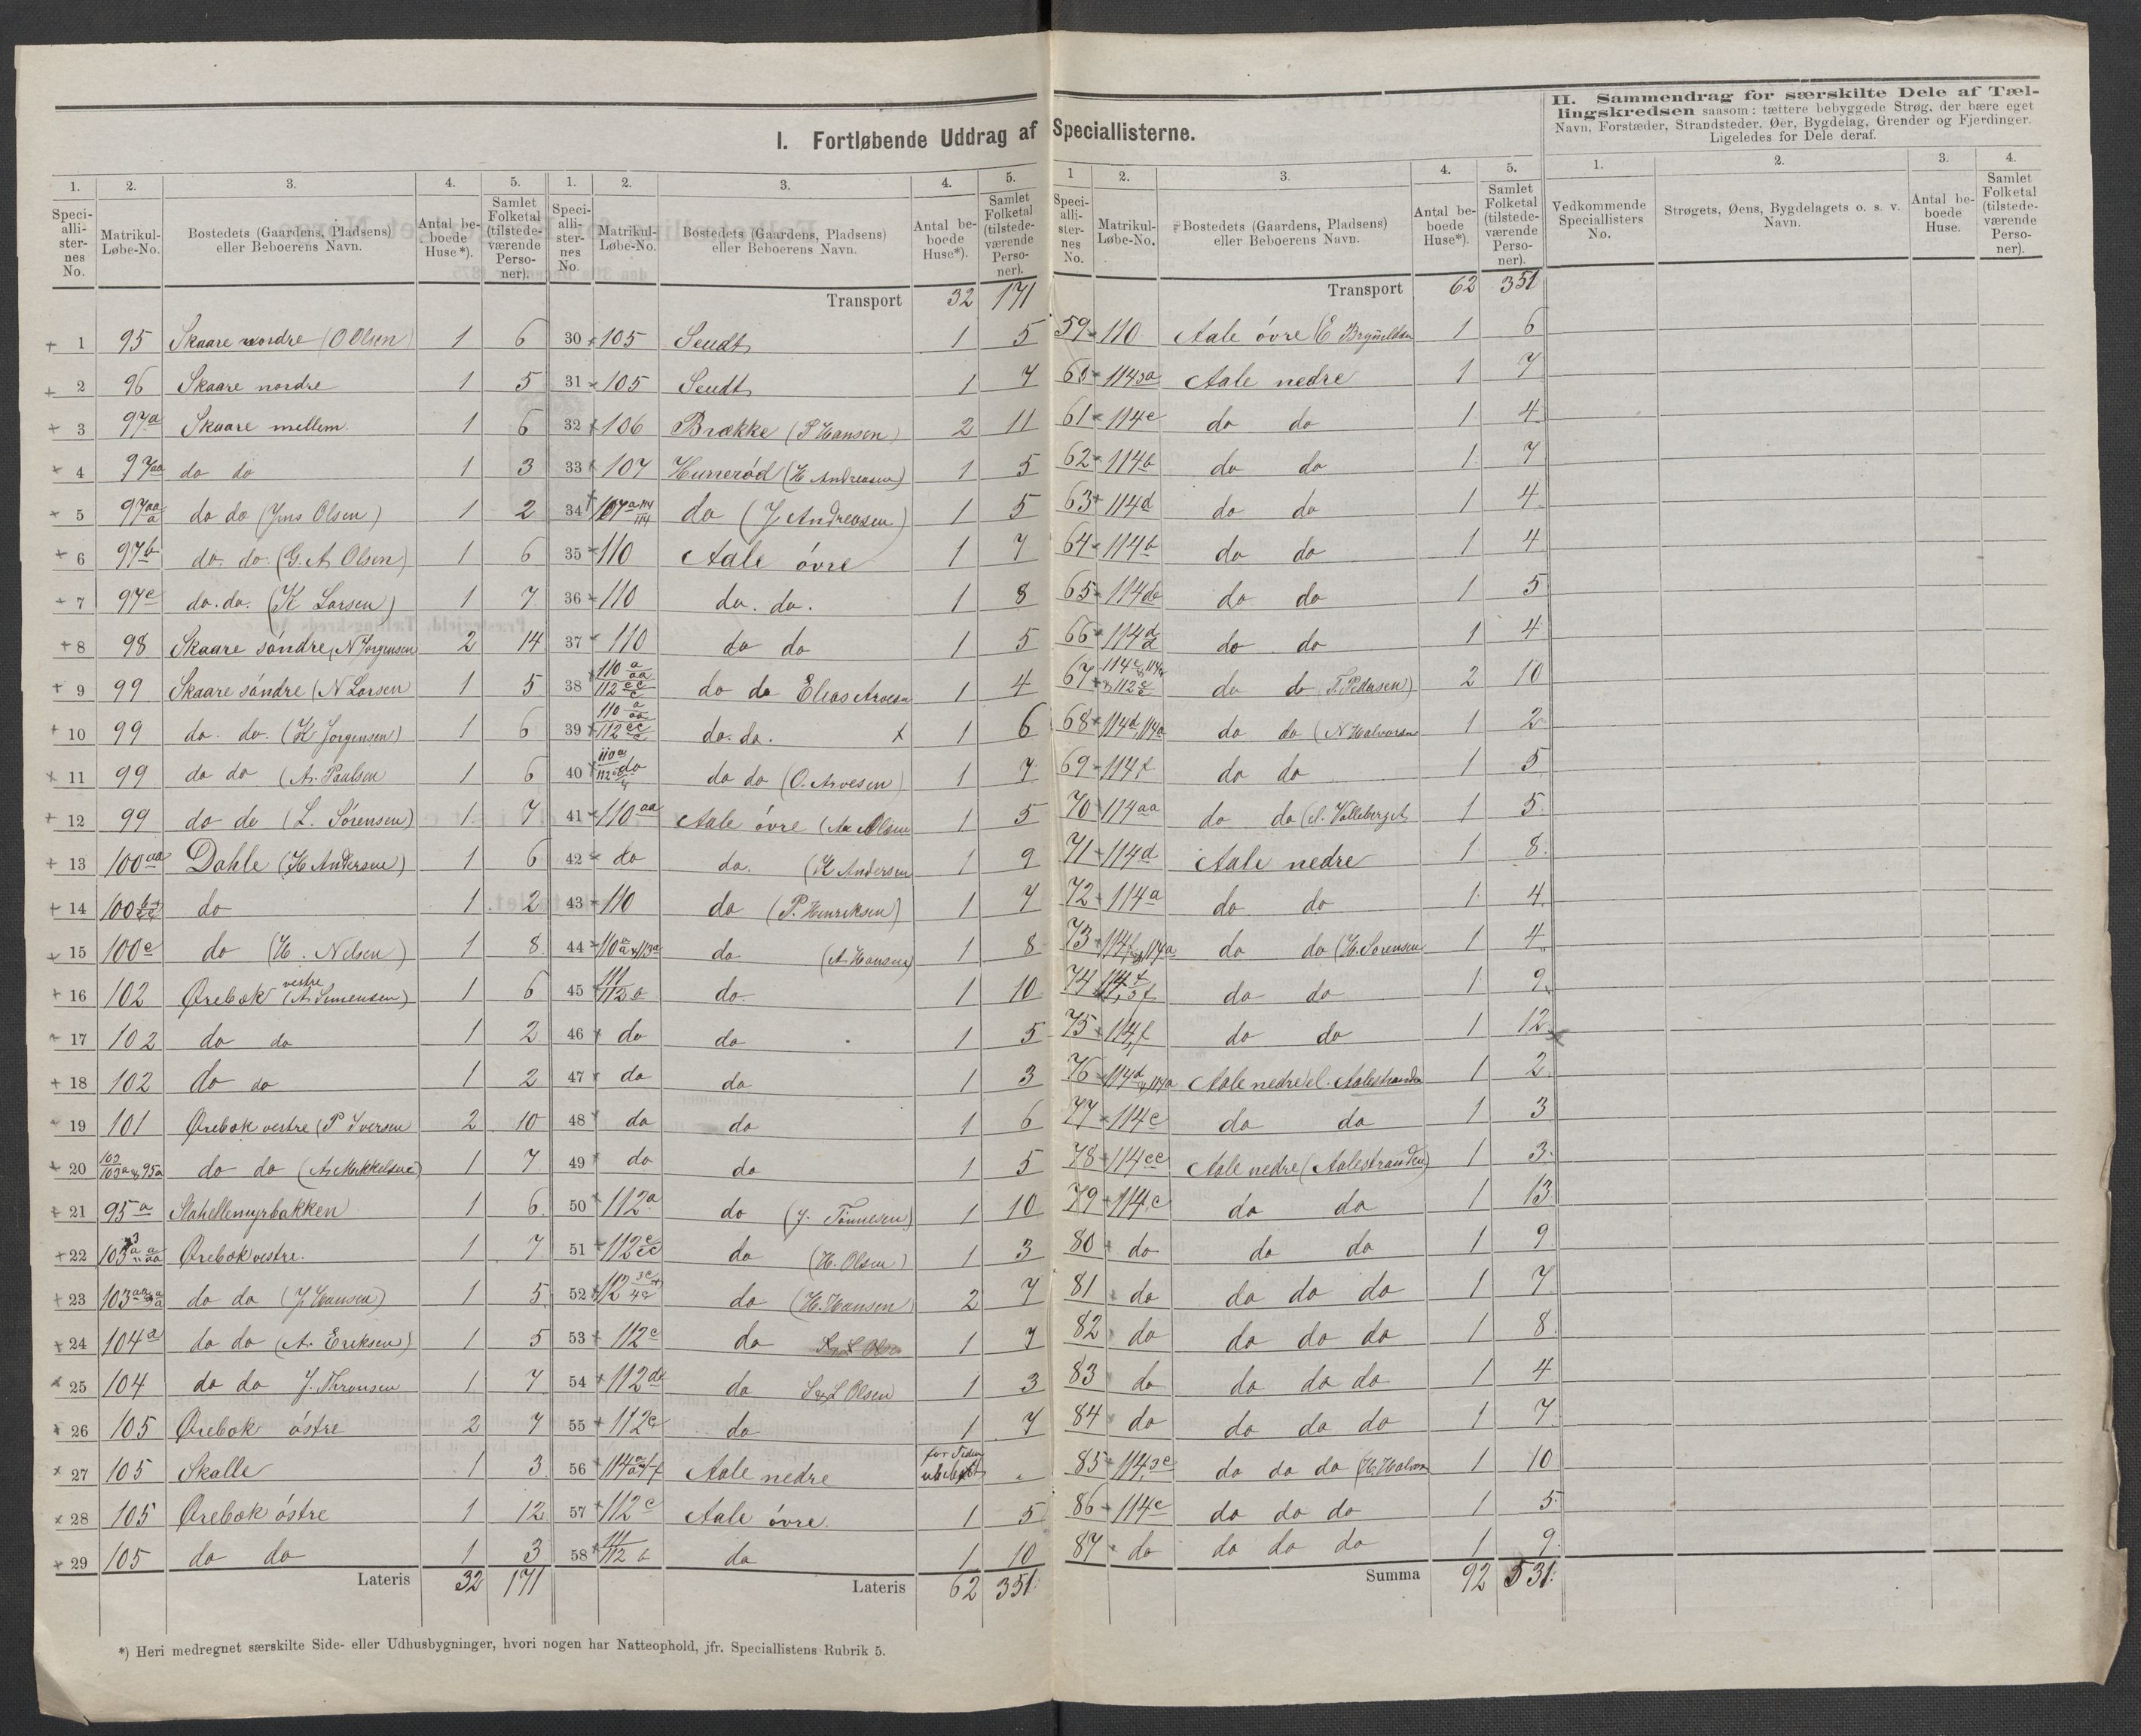 I. Fortløbende Uddrag af Speciallisterne.
II. Sammendrag for særskilte Dele af Tæl-
lingskredsen saasom: tættere bebyggede Strøg, der bære eget
Navn, Forstæder, Strandsteder, Øer, Bygdelag, Grender og Fjerdinger.
Ligeledes for Dele deraf.
1. 2. 3. 4. 5.
Speci-alli-ster-nes No. Matrikul-Løbe-No. Bostedets (Gaardens, Pladsens) eller Beboerens Navn. Antal be-boede Huse*). Samlet Folketal (tilstede-værende Perso-ner).
1 95 Skaare nordre (O Olsen) 1 6
2 96 Skaare nordre 1 5
3 97a Skaare mellem. 1 6
4 97aa do do 1 3
5 97aa/a do do (Jens Olsen) 1 2
6 97b do. do. (G. A. Olsen) 1 6
7 97c do. do. (K Larsen) 1 7
8 98 Skaare söndre (N Jorgensen 2 14
9 99 Skaare söndre (N Larsen 1 5
10 99 do. do. (K Jorgensen) 1 6
11 99 do do (A. Paulsen 1 6
12 99 do do (L. Sörensen) 1 7
13 100aa Dahle (H Andersen) 1 6
14 100 do 1 2
15 100c do (H. Nelsen) 1 8
16 102 Ørebæk vestre (A. Simensen) 1 6
17 102 do do 1 2
18 102 do do 1 2
19 101 Ørebæk vestre (P Iversen 2 10
20 103/103a & 95a do do (A. Mekkelsen) 1 7
21 95a Stahellemyrbakken 1 6
22 103 Ørebæk vestre. 1 7
23 103aa do do (J. Hansen) 1 5
24 104a do do (A. Eriksen) 1 5
25 104 do do J. Thronsen 1 7
26 105 Ørebæk östre 2 7
27 105 Skalle 1 3
28 105 Ørebæk östre 1 12
29 105 do do 1 3
Lateris 32 171
1. 2. 3. 4. 5.
Speci-alli-ster-nes No. Matrikul-Løbe-No. Bostedets (Gaardens, Pladsens) eller Beboerens Navn. Antal be-boede Huse*). Samlet Folketal (tilstede-værende Perso-ner).
Transport 32 171
30 105 Seudt 1 5
31 105 Seudt 1 7
32 106 Brække (P Hansen) 2 11
33 107 Hunerød (H Andreasen) 1 5
34 107a do (J. Andreasen) 1 5
35 110 Aale övre 1 7
36 110 do. do. 1 8
37 110 do do 1 5
38 110 a/aa 112 cc/c do do Elias Arvesen 1 4
39 110 a/aa 112 cc/c do. do. x 1 6
40 110a do do (O. Arvesen) 1 7
41 110aa Aale övre (A Olsen 1 5
42 do do. (K Andersen 1 9
43 110 do (P. Henriksen) 1 7
44 110 a/a & 113a do (A. Hansen) 1 8
45 111/112 b do. 1 10
46 do do 1 5
47 do do 1 3
48 do do 1 6
49 do do 1 5
50 112a do (J. Tönnesen) 1 10
51 112 c/cc do (H. Olsen) 1 3
52 112 do (H. Hansen) 2 7
53 112c do 1 7
54 112 do L Olsen 1 3
55 112c do 1 7
56 114 Aale nedre for Tiden ubebygt "
57 112c Aale övre. 1 5
58 111/112 b do 1 10
Lateris 62 351
1 2. 3. 4. 5.
Speci-alli-ster-nes No. Matrikul-Løbe-No. Bostedets (Gaardens, Pladsens) eller Beboerens Navn. Antal be-boede Huse*). Samlet Folketal (tilstede-værende Perso-ner).
Transport 62 351
59 110 Aale övre (E Brynildsen 1 6
60 114 3a Aale nedre 1 7
61 114c do do 1 4
62 114b do do 1 7
63 114d do do 1 4
64 114b do do 1 4
65 114 do do 1 5
66 114 d/d do do 1 4
67 do do (P. Pedersen) 2 10
68 114d, 114a do do (N Halvorsen 1 2
69 114f do do 1 5
70 114aa do do (A. Volleberget 1 5
71 114d Aale nedre 1 8
72 114a do do 1 4
73 114f & 114a do do (H. Sorensen 1 4
74 114 do do 1 9
75 114f do do 1 12
76 114d & 114a Aale nedre el. Aalestranden 1 2
77 114c do do 1 3
78 114cc Aale nedre (Aalestranden) 1 3
79 114c do do 1 13
80 do do do 1 9
81 do do do do 1 7
82 do do do do 1 8
83 do do do do 1 4
84 do do do do 1 7
85 114 3c do do do (H. Halvors 1 10
86 114c do do do 1 5
87 do do do do 1 9
Summa 92 531
1. 2. 3. 4.
Vedkommende Speciallisters No. Strøgets, Øens, Bygdelagets o. s. v. Navn. Antal be-boede Huse. Samlet Folketal (tilstede-værende Perso-ner).
*) Heri medregnet særskilte Side- eller Udhusbygninger, hvori nogen har Natteophold, jfr. Speciallistens Rubrik 5.